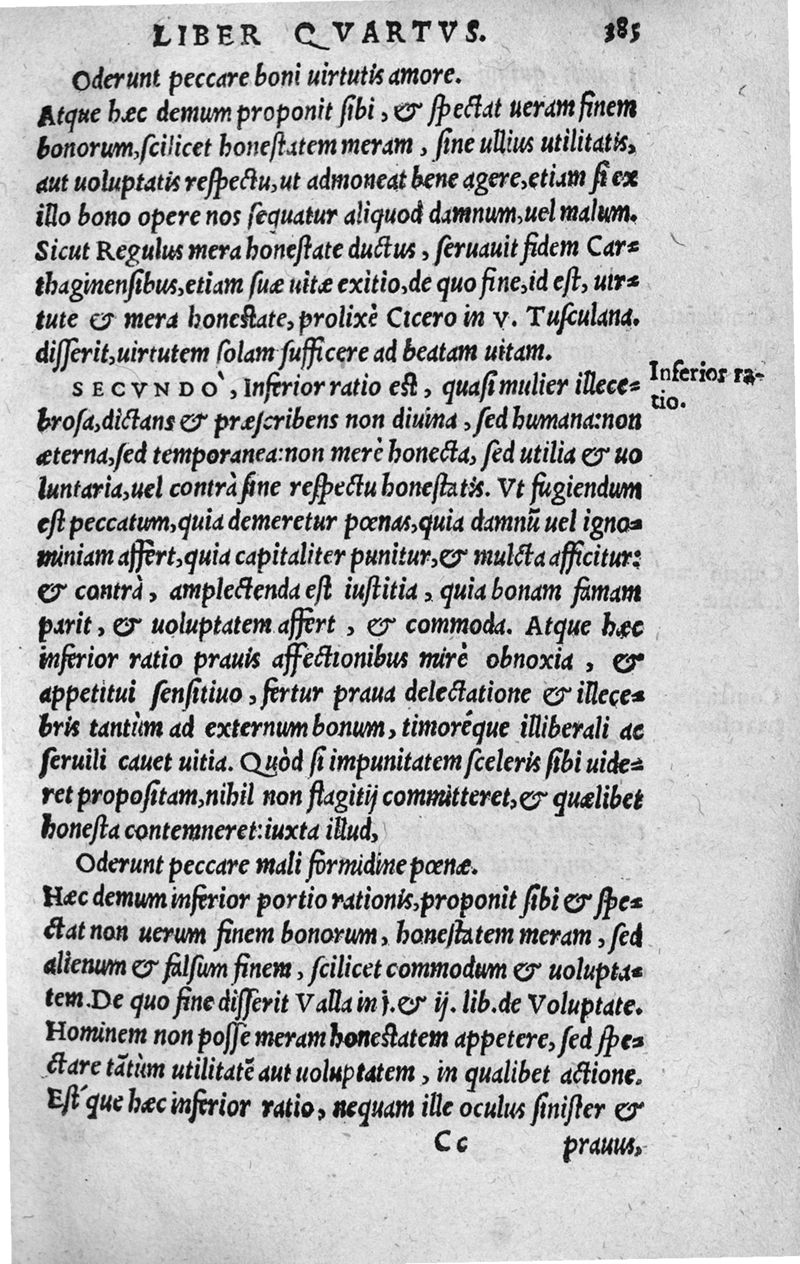 LIBER QVARTVS. 385
Oderunt peccare boni uirtutis amore.
Atque hæc demum proponit sibi, & spectat ueram finem
bonorum, scilicet honestatem meram, sine ullius utilitatis,
aut uoluptatis respectu, ut admoneat bene agere, etiam si ex
illo bono opere nos sequatur aliquod damnum, uel malum.
Sicut Regulus mera honestate ductus, seruauit fidem Car=
thaginensibus, etiam suæ uitæ exitio, de quo fine, id est, uir=
tute & mera honestate, prolixè Cicero in v. Tusculana.
disserit, uirtutem solam sufficere ad beatam uitam.
SECVNDO`, Inferior ratio est, quasi mulier illece=
brosa, dictans & præscribens non diuina, sed humana: non
æterna, sed temporanea: non merè honecta, sed utilia & uo
luntaria, uel contrà sine respectu honestatis. Vt fugiendum
est peccatum, quia demeretur pœnas, quia damnū uel igno=
miniam affert, quia capitaliter punitur, & mulcta afficitur:
& contrà, amplectenda est iustitia, quia bonam famam
parit, & uoluptatem affert, & commoda. Atque hæc
inferior ratio prauis affectionibus mirè obnoxia, &
appetitui sensitiuo, fertur praua delectatione & illece=
bris tantùm ad externum bonum, timoréque illiberali ac
seruili cauet uitia. Quòd si impunitatem sceleris sibi uide=
ret propositam, nihil non flagitij committeret, & quælibet
honesta contemneret: iuxta illud,
Oderunt peccare mali formidine pœnæ.
Hæc demum inferior portio rationis, proponit sibi & spe=
ctat non uerum finem bonorum, honestatem meram, sed
alienum & falsum finem, scilicet commodum & uolupta=
tem. De quo fine disserit Valla in j. & ij. lib. de Voluptate.
Hominem non posse meram honestatem appetere, sed spe=
ctare tātùm utilitatē aut uoluptatem, in qualibet actione.
Est´que hæc inferior ratio, nequam ille oculus sinister &
Cc prauus,
Inferior ra=
tio.